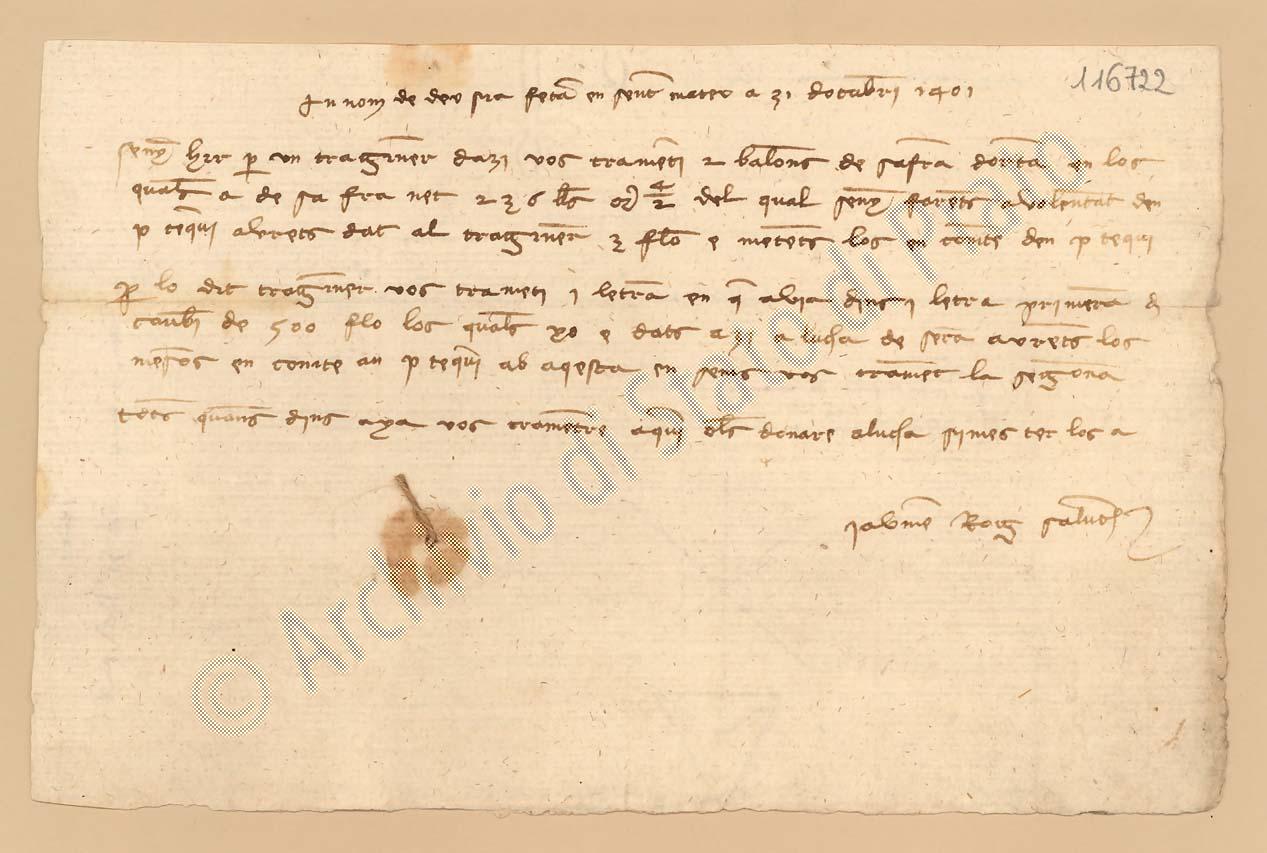 116722
In nom de deu sia feta en sent mateu a 31 dotubri 1401
senyer hir per un traginer dazi vos trameti 2 balons de safra dorta en los
quals a de safra net 236 lbs del qual senyer farets a volentat den
p tequi aurets dat al traginer 3 flo e metets los en conte den p tequi
per lo dit traginer vos trameti 1 letra en q avia dins 1 letra primera d
canbi de 500 flo los quals yo e dats azi a lucha de sera aurets los
mesos en conte an p tequi ab aqesta en sems vos tramet la segona
tots quans dins axa vos trametre aqui els donare a lucha si mester los a
Jaume Roig saluts
© Archivio di Stato di Prato